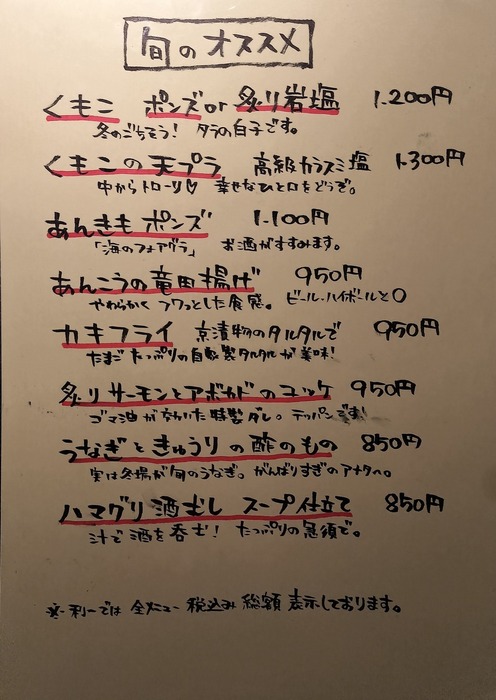 旬のオススメ
くもこ ポンズor炙り岩塩 1.200円
冬のごちそう! タラの白子です。
くもこの天プラ 高級カラスミ塩 1.300円
中からトローリ♡ 幸せなひと口をどうぞ。
あんきもポンズ 1.100円
「海のフォアグラ」 お酒がすすみます。
あんこうの竜田揚げ 950円
やわらかくフワっとした食感。 ビール・ハイボールと〇
カキフライ 京漬物のタルタルで 950円
たまごたっぷりの自家製タルタルが美味!
炙りサーモンとアボカドのユッケ 950円
ゴマ油が効いた特製ダレ。テッパンです!
うなぎときゅうりの酢のもの 850円
実は冬場が旬のうなぎ。がんばりすぎのアナタへ。
ハマグリ酒むし スープ仕立て 850円
汁で酒を呑む! たっぷりの急須で。
※一利一では 全メニュー 税込み総額表示しております。